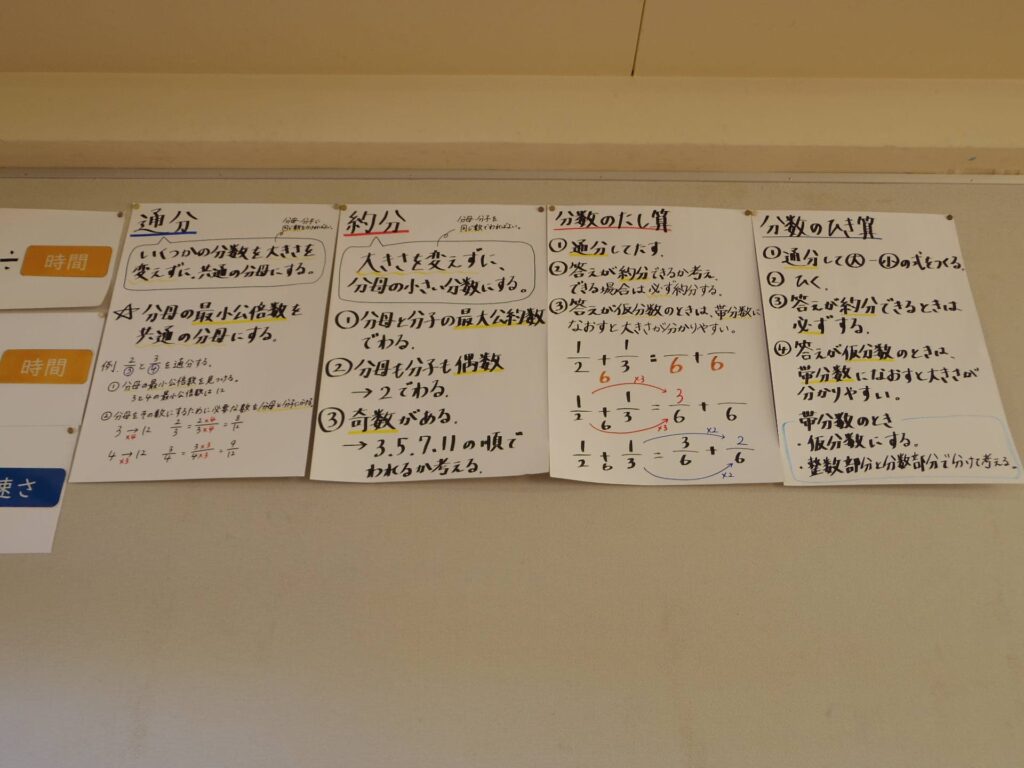 ÷
時間
時間
速さ
通分
分母・分子に
同じ数をかければよい。
いくつかの分数を大きさを
変えずに、共通の分母にする。
☆分母の最小公倍数を
共通の分母にする。
例. 2/3と3/4を通分する。
①分母の最小公倍数を見つける。
3と4の最小公倍数は12
②分母をその数にするために必要な数を分母と分子にかける
3→12 ×4 2/3=2×4/3×4=8/12
4→12 ×3 3/4=3×3/4×3=9/12
約分
分母・分子を
同じ数でわればよい。
大きさを変えずに、
分母の小さい分数にする。
①分母と分子の最大公約数
でわる。
②分母も分子も偶数
→2でわる。
③奇数がある。
→3.5.7.11の順で
われるか考える.
分数のたし算
①通分してたす.
②答えが約分できるか考え.
できる場合は必ず約分する.
③答えが仮分数のときは、帯分数
になおすと大きさが分かりやすい。
1/2 + 1/3 = /6 + /6
6
×3
1/2 + 1/3 3/6 + /6
6 ×3
×2
1/2 + 1/3 3/6 + 2/6
6 ×2
分数のひき算
①通分して大-小の式をつくる.
②ひく.
③答えが約分できるときは
必ずする.
④答えが仮分数のときは、
帯分数になおすと大きさが
分かりやすい。
帯分数のとき
・仮分数にする。
・整数部分と分数部分で分けて考える。